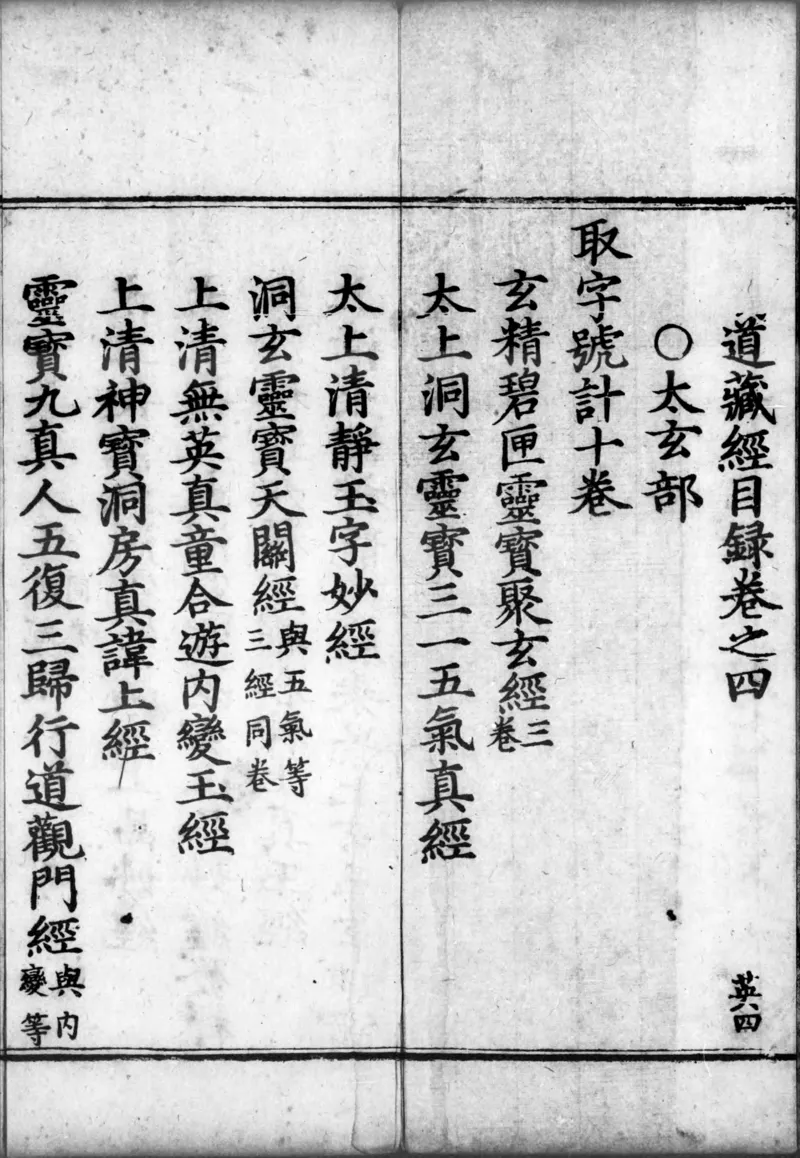 道藏經目録卷之四 英四
○太玄部
取字號計十卷
玄精碧匣靈寳聚玄經三卷
太上洞玄靈寳三一五氣真經
太上清靜玉字妙經
洞玄靈寳天關經與五氣等三經同卷
上清無英真童合遊内變玉經
上清神寳洞房真諱上經
靈寳九真人五復三歸行道觀門經與内變等